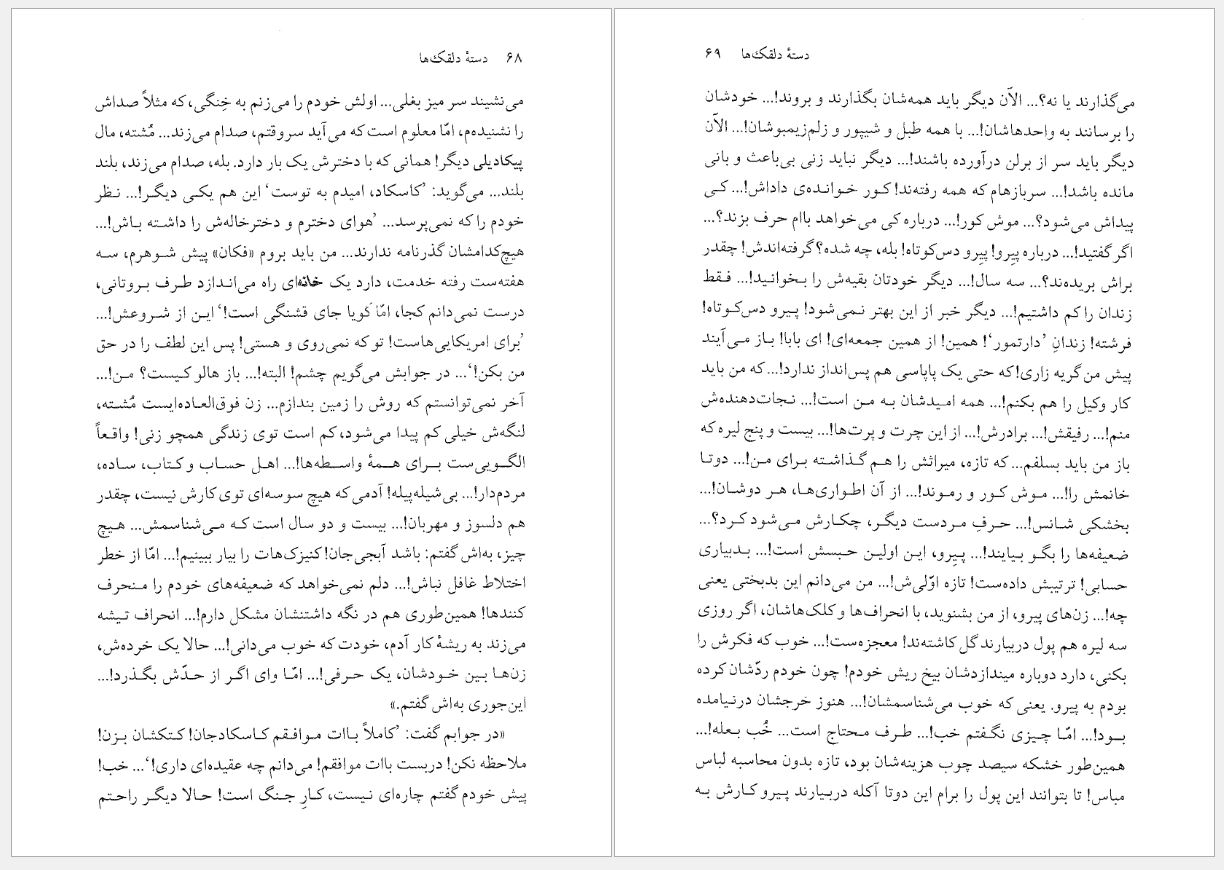 ۶۸ دستهٔ دلقک‌ها
می‌نشیند سر میز بغلی... اولش خودم را می‌زنم به خِنگی، که مثلاً صداش
را نشنیده‌م، امّا معلوم است که می‌آید سروقتم، صدام می‌زند... مُشته، مال
پیکادیلی دیگر! همانی که با دخترش یک بار دارد. بله، صدام می‌زند، بلند
بلند... می‌گوید: ’کاسکاد، امیدم به توست‘ این هم یکی دیگر!... نظر
خودم را که نمی‌پرسد... ’هوای دخترم و دخترخاله‌ش را داشته باش!...
هیچ‌کدامشان گذرنامه ندارند... من باید بروم «فکان» پیش شوهرم، سه
هفته‌ست رفته خدمت، دارد یک خانه‌ای راه می‌اندازد طرف بروتانی،
درست نمی‌دانم کجا، امّا گویا جای قشنگی است!‘ این از شروعش!...
’برای امریکایی‌هاست! تو که نمی‌روی و هستی! پس این لطف را در حق
من بکن!‘... در جوابش می‌گویم چشم! البته!... باز هالو کیست؟ من!...
آخر نمی‌توانستم که روش را زمین بندازم... زن فوق‌العاده‌ایست مُشته،
لنگه‌ش خیلی کم پیدا می‌شود، کم است توی زندگی همچو زنی! واقعاً
الگویی‌ست برای همهٔ واسطه‌ها!... اهل حساب و کتاب، ساده،
مردم‌دار!... بی‌شیله‌پیله! آدمی که هیچ سوسه‌ای توی کارش نیست، چقدر
هم دلسوز و مهربان!... بیست و دو سال است که می‌شناسمش... هیچ
چیز، به‌اش گفتم: باشد آبجی‌جان! کنیزک‌هات را بیار ببینیم!... امّا از خطر
اختلاط غافل نباش!... دلم نمی‌خواهد که ضعیفه‌های خودم را منحرف
کنندها! همین‌طوری هم در نگه داشتنشان مشکل دارم!... انحراف تیشه
می‌زند به ریشهٔ کار آدم، خودت که خوب می‌دانی!... حالا یک خرده‌ش،
زن‌ها بین خودشان، یک حرفی!... امّا وای اگر از حدّش بگذرد!...
این‌جوری به‌اش گفتم.»
«در جوابم گفت: ’کاملاً باات موافقم کاسکادجان! کتکشان بزن!
ملاحظه نکن! دربست باات موافقم! می‌دانم چه عقیده‌ای داری!‘... خب!
پیش خودم گفتم چاره‌ای نیست، کارِ جنگ است! حالا دیگر راحتم
دستهٔ دلقک‌ها ۶۹
می‌گذارند یا نه؟... الآن دیگر باید همه‌شان بگذارند و بروند!... خودشان
را برسانند به واحدهاشان!... با همه طبل و شیپور و زلم‌زیمبوشان!... الآن
دیگر باید سر از برلن درآورده باشند!... دیگر نباید زنی بی‌باعث و بانی
مانده باشد!... سربازهام که همه رفته‌ند! کور خوانده‌ی داداش!... کی
پیداش می‌شود؟... موش کور!... درباره کی می‌خواهد باام حرف بزند؟...
اگر گفتید!... درباره پیِرو! پیِرو دس‌کوتاه! بله، چه شده؟ گرفته‌اندش! چقدر
براش بریده‌ند؟... سه سال!... دیگر خودتان بقیه‌ش را بخوانید!... فقط
زندان را کم داشتیم!... دیگر خبر از این بهتر نمی‌شود! پیرو دس‌کوتاه!
فرشته! زندانِ ’دارتمور‘! همین! از همین جمعه‌ای! ای بابا! باز می‌آیند
پیش من گریه زاری! که حتی یک پاپاسی هم پس‌انداز ندارد!... که من باید
کار وکیل را هم بکنم!... همه امیدشان به من است!... نجات‌دهنده‌ش
منم!... رفیقش!... برادرش!... از این چرت و پرت‌ها!... بیست و پنج لیره که
باز من باید بسلفم... که تازه، میراثش را هم گذاشته برای من!... دوتا
خانمش را!... موش کور و رموند!... از آن اطواری‌ها، هر دوشان!...
بخشکی شانس!... حرفِ مردست دیگر، چکارش می‌شود کرد؟...
ضعیفه‌ها را بگو بیایند!... پیِرو، این اولین حبسش است!... بدبیاری
حسابی! ترتیبش داده‌ست! تازه اوّلی‌ش!... من می‌دانم این بدبختی یعنی
چه!... زن‌های پیرو، از من بشنوید، با انحراف‌ها و کلک‌هاشان، اگر روزی
سه لیره هم پول دربیارند گل کاشته‌ند! معجزه‌ست!... خوب که فکرش را
بکنی، دارد دوباره میندازدشان بیخ ریش خودم! چون خودم ردّشان کرده
بودم به پیرو. یعنی که خوب می‌شناسمشان!... هنوز خرجشان درنیامده
بود!... امّا چیزی نگفتم خب!... طرف محتاج است... خُب بعله!...
همین‌طور خشکه سیصد چوب هزینه‌شان بود، تازه بدون محاسبه لباس
مباس! تا بتوانند این پول را برام این دوتا آکله دربیارند پیرو کارش به